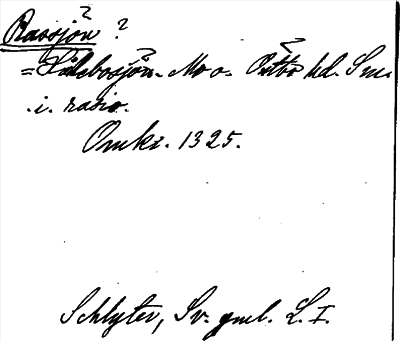 Rassjön ?
= Hålebosjön. Mo o. Östbo hd. Sm.
i. rasio.
Omkr. 1325.
Schlyter, Sv. gml. L. I.